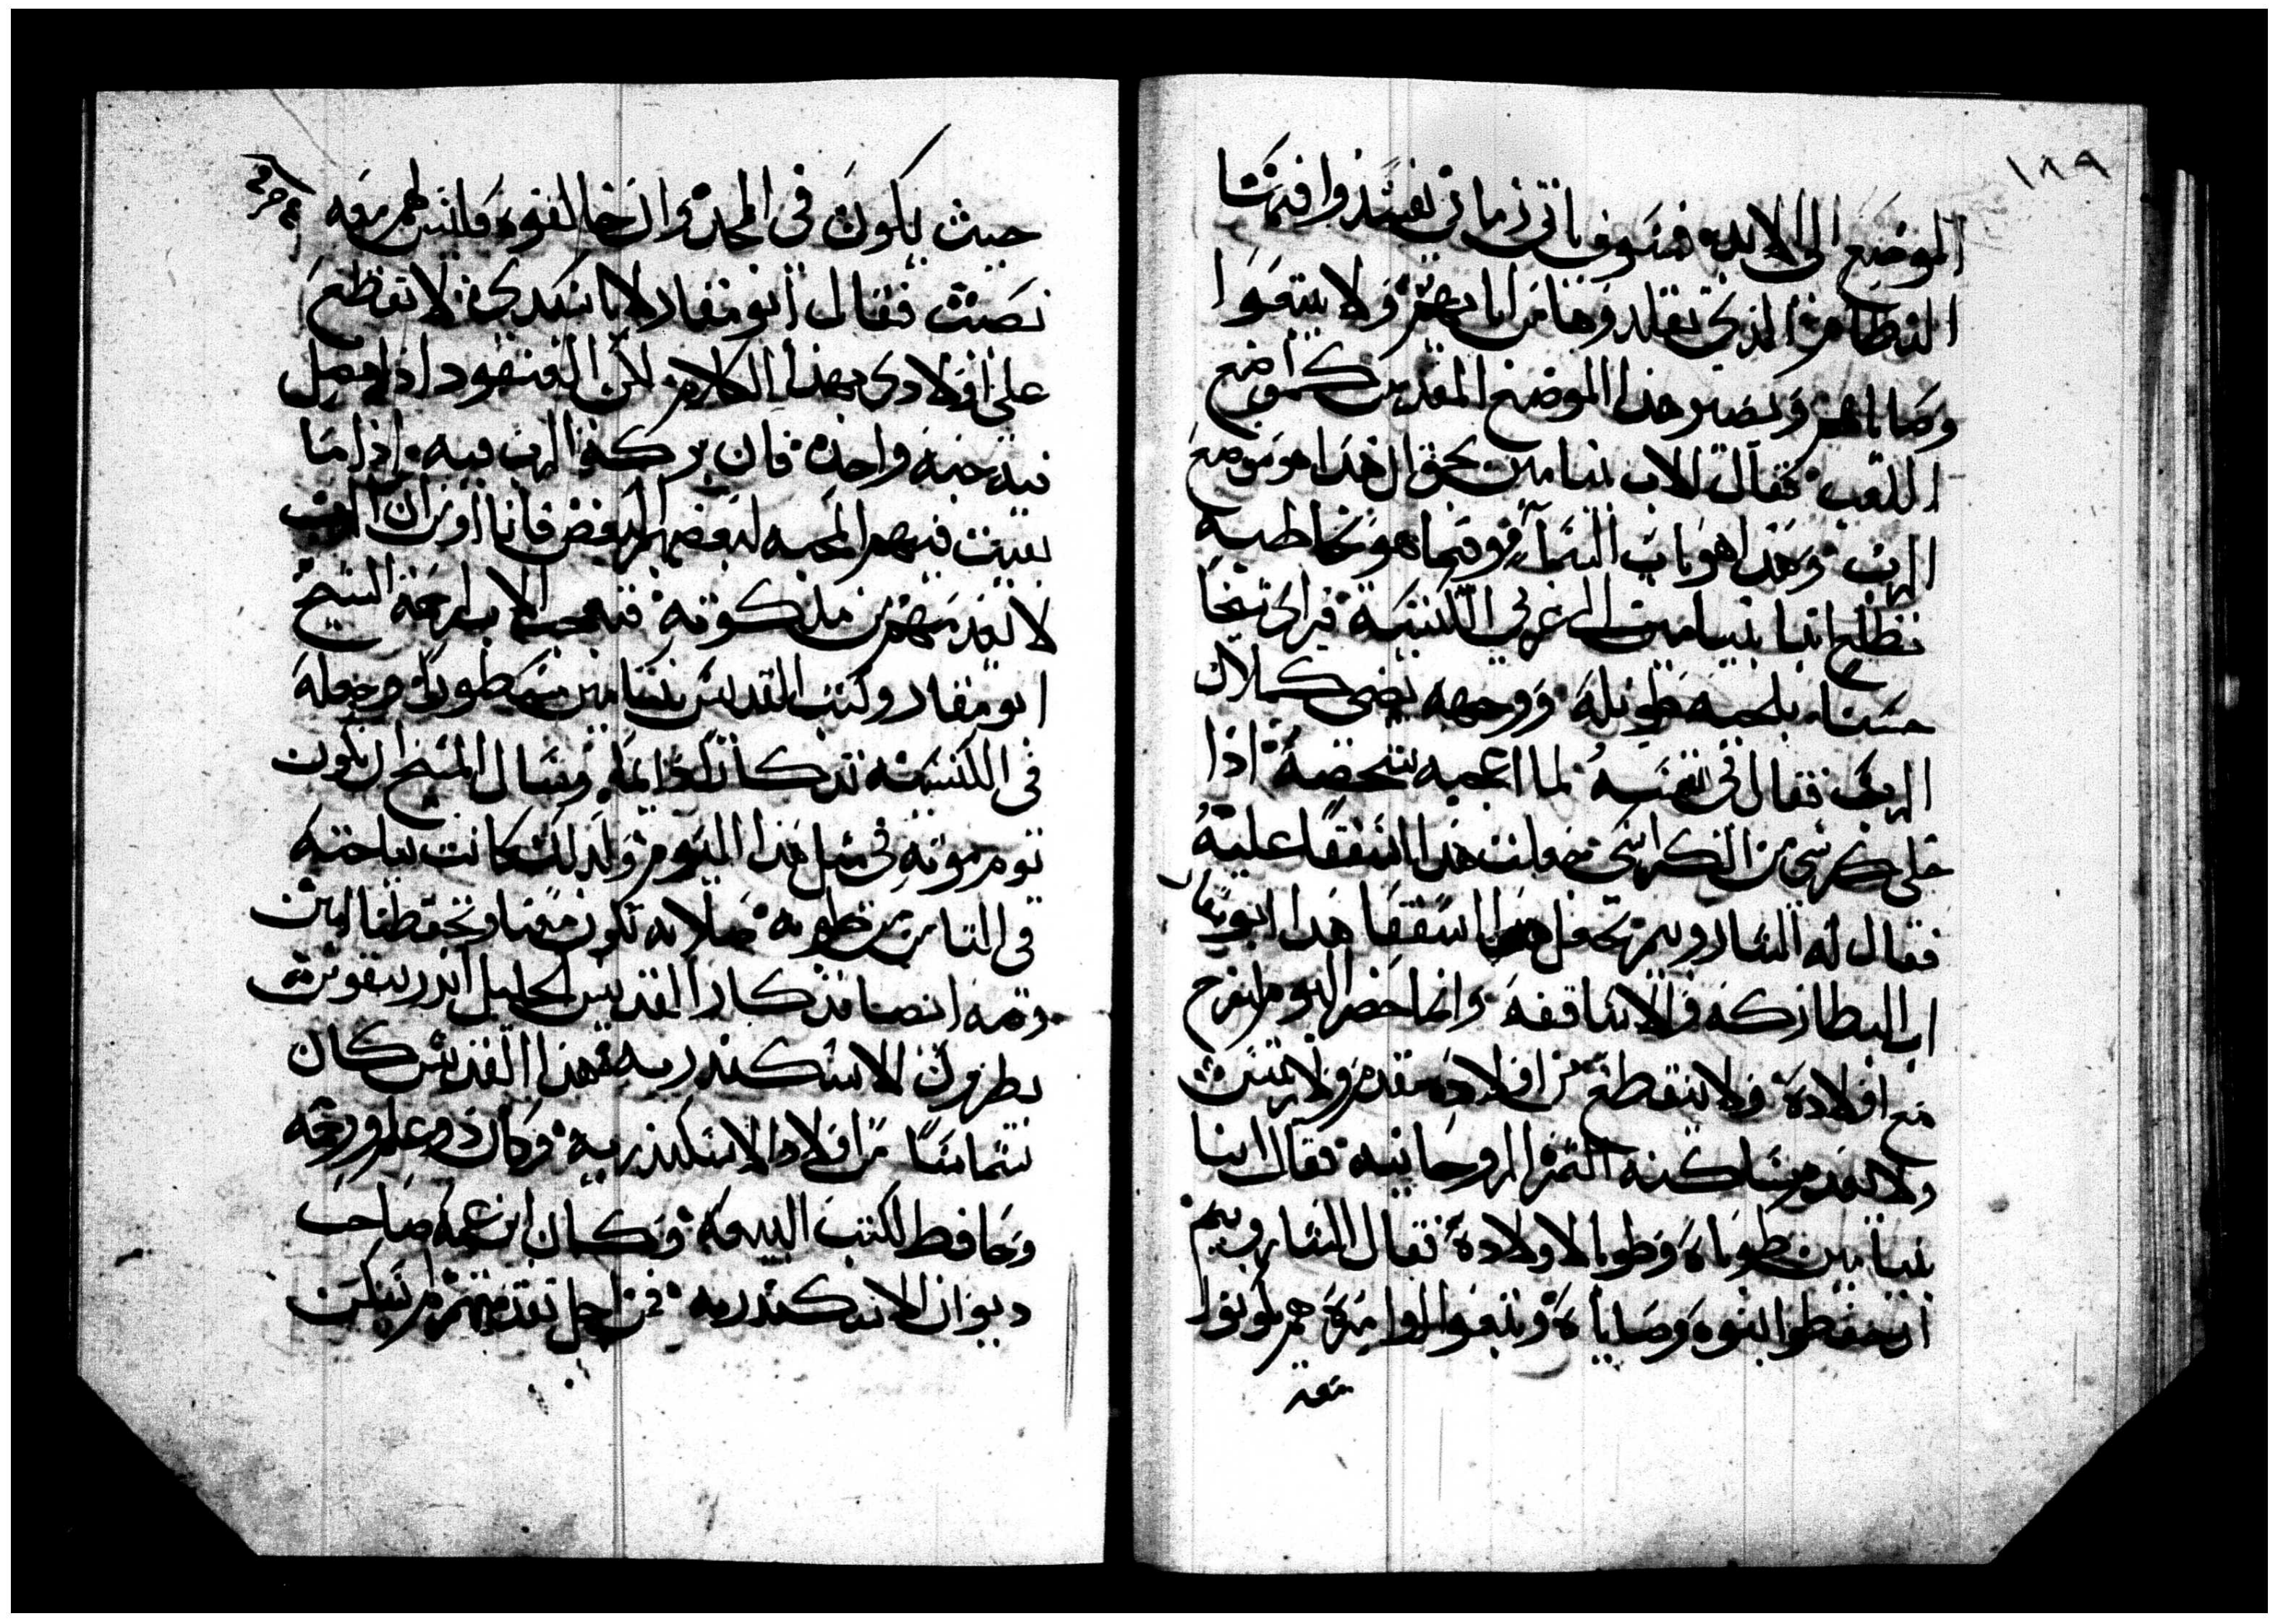 ١٨٩
الموضع الى الابد فسوف ياتى زمان يفسدوا فيه
النظام الذى تقلدوه من ابايهم ولا يتبعوا
وصاياهم ويصير هذا الموضع المقدس كموضع
اللعب فقال الاب بنيامين بحق ان هذا هو موضع
الرب وهذا هو باب السما وفيما هو يخاطبه
تطلع انبا بنيامين الى غربى الكنيسة فراى شيخا
حسنا بلحيه طويله ووجهه يضى كملاك
الرب فقال فى نفسه لما اعجبه شخصه اذا
خلى كرسى من الكراسى جعلت هذا اسقفا عليه
فقال له الشاروبيم تجعل هذا اسقفا هذا ابو مقار
اب البطاركه والاساقفه وانما حضر اليوم ليفرح
مع اولاده ولا ينقطع من اولاده مقدم ولا رييس
ولا يعدم مساكنه الثمر الروحانيه فقال انبا
بنيامين طوباه وطوبا لاولاده فقال الشاروبيم
ان حفظوا بنوه وصاياه وتبعوا اوامره هم يكونوا
معه
حيث يكون فى المجد وان خالفوه فليس لهم معه
نصيب فقال ابو مقار لا يا سيدى لا تقطع
على اولادى بهذا الكلام لان العنقود اذا فضل
فيه حبه واحده فان بركة الرب فيه اذا ما
بقيت فيهم المحبه لبعضهم البعض فانا اومن ان الرب
لا يبعدهم من ملكوته فتعجب الاب لرحمة الشيخ
ابو مقار وكتب القديس بنيامين سطور وجعله
فى الكنيسه تذكارا دايما وسال المسيح ان يكون
يوم موته فى مثل هذا اليوم ولذلك كانت نياحته
فى الثامن من طوبه صلاته تكون معنا وتحفظنا امين
وفيه ايضا تذكار القديس الجليل اندرونيقوس
بطريرك الاسكندريه هذا القديس كان
شماسا من اولاد الاسكندريه وكان ذو علم ورحمه
وحافظ لكتب البيعه وكان ابن عمه صاحب
ديوان الاسكندريه فمن اجل تقدمهم لم يتمكن